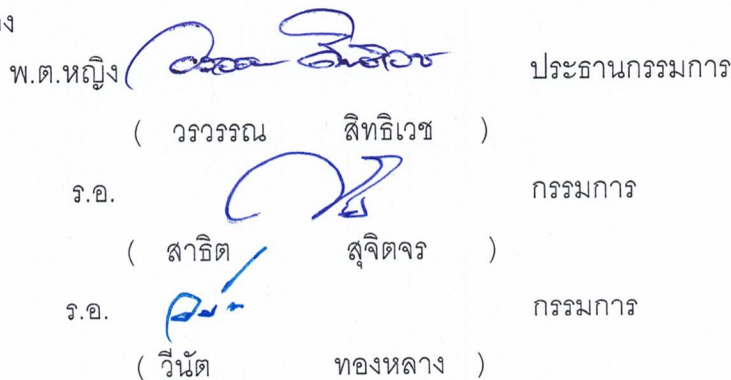 พ.ต.หญิง วรวรรณ สิทธิเวช ประธานกรรมการ
( วรวรรณ สิทธิเวช )
ร.อ. กรรมการ
( สาธิต สุจิตจร )
ร.อ. กรรมการ
( วีนัต ทองหลาง )